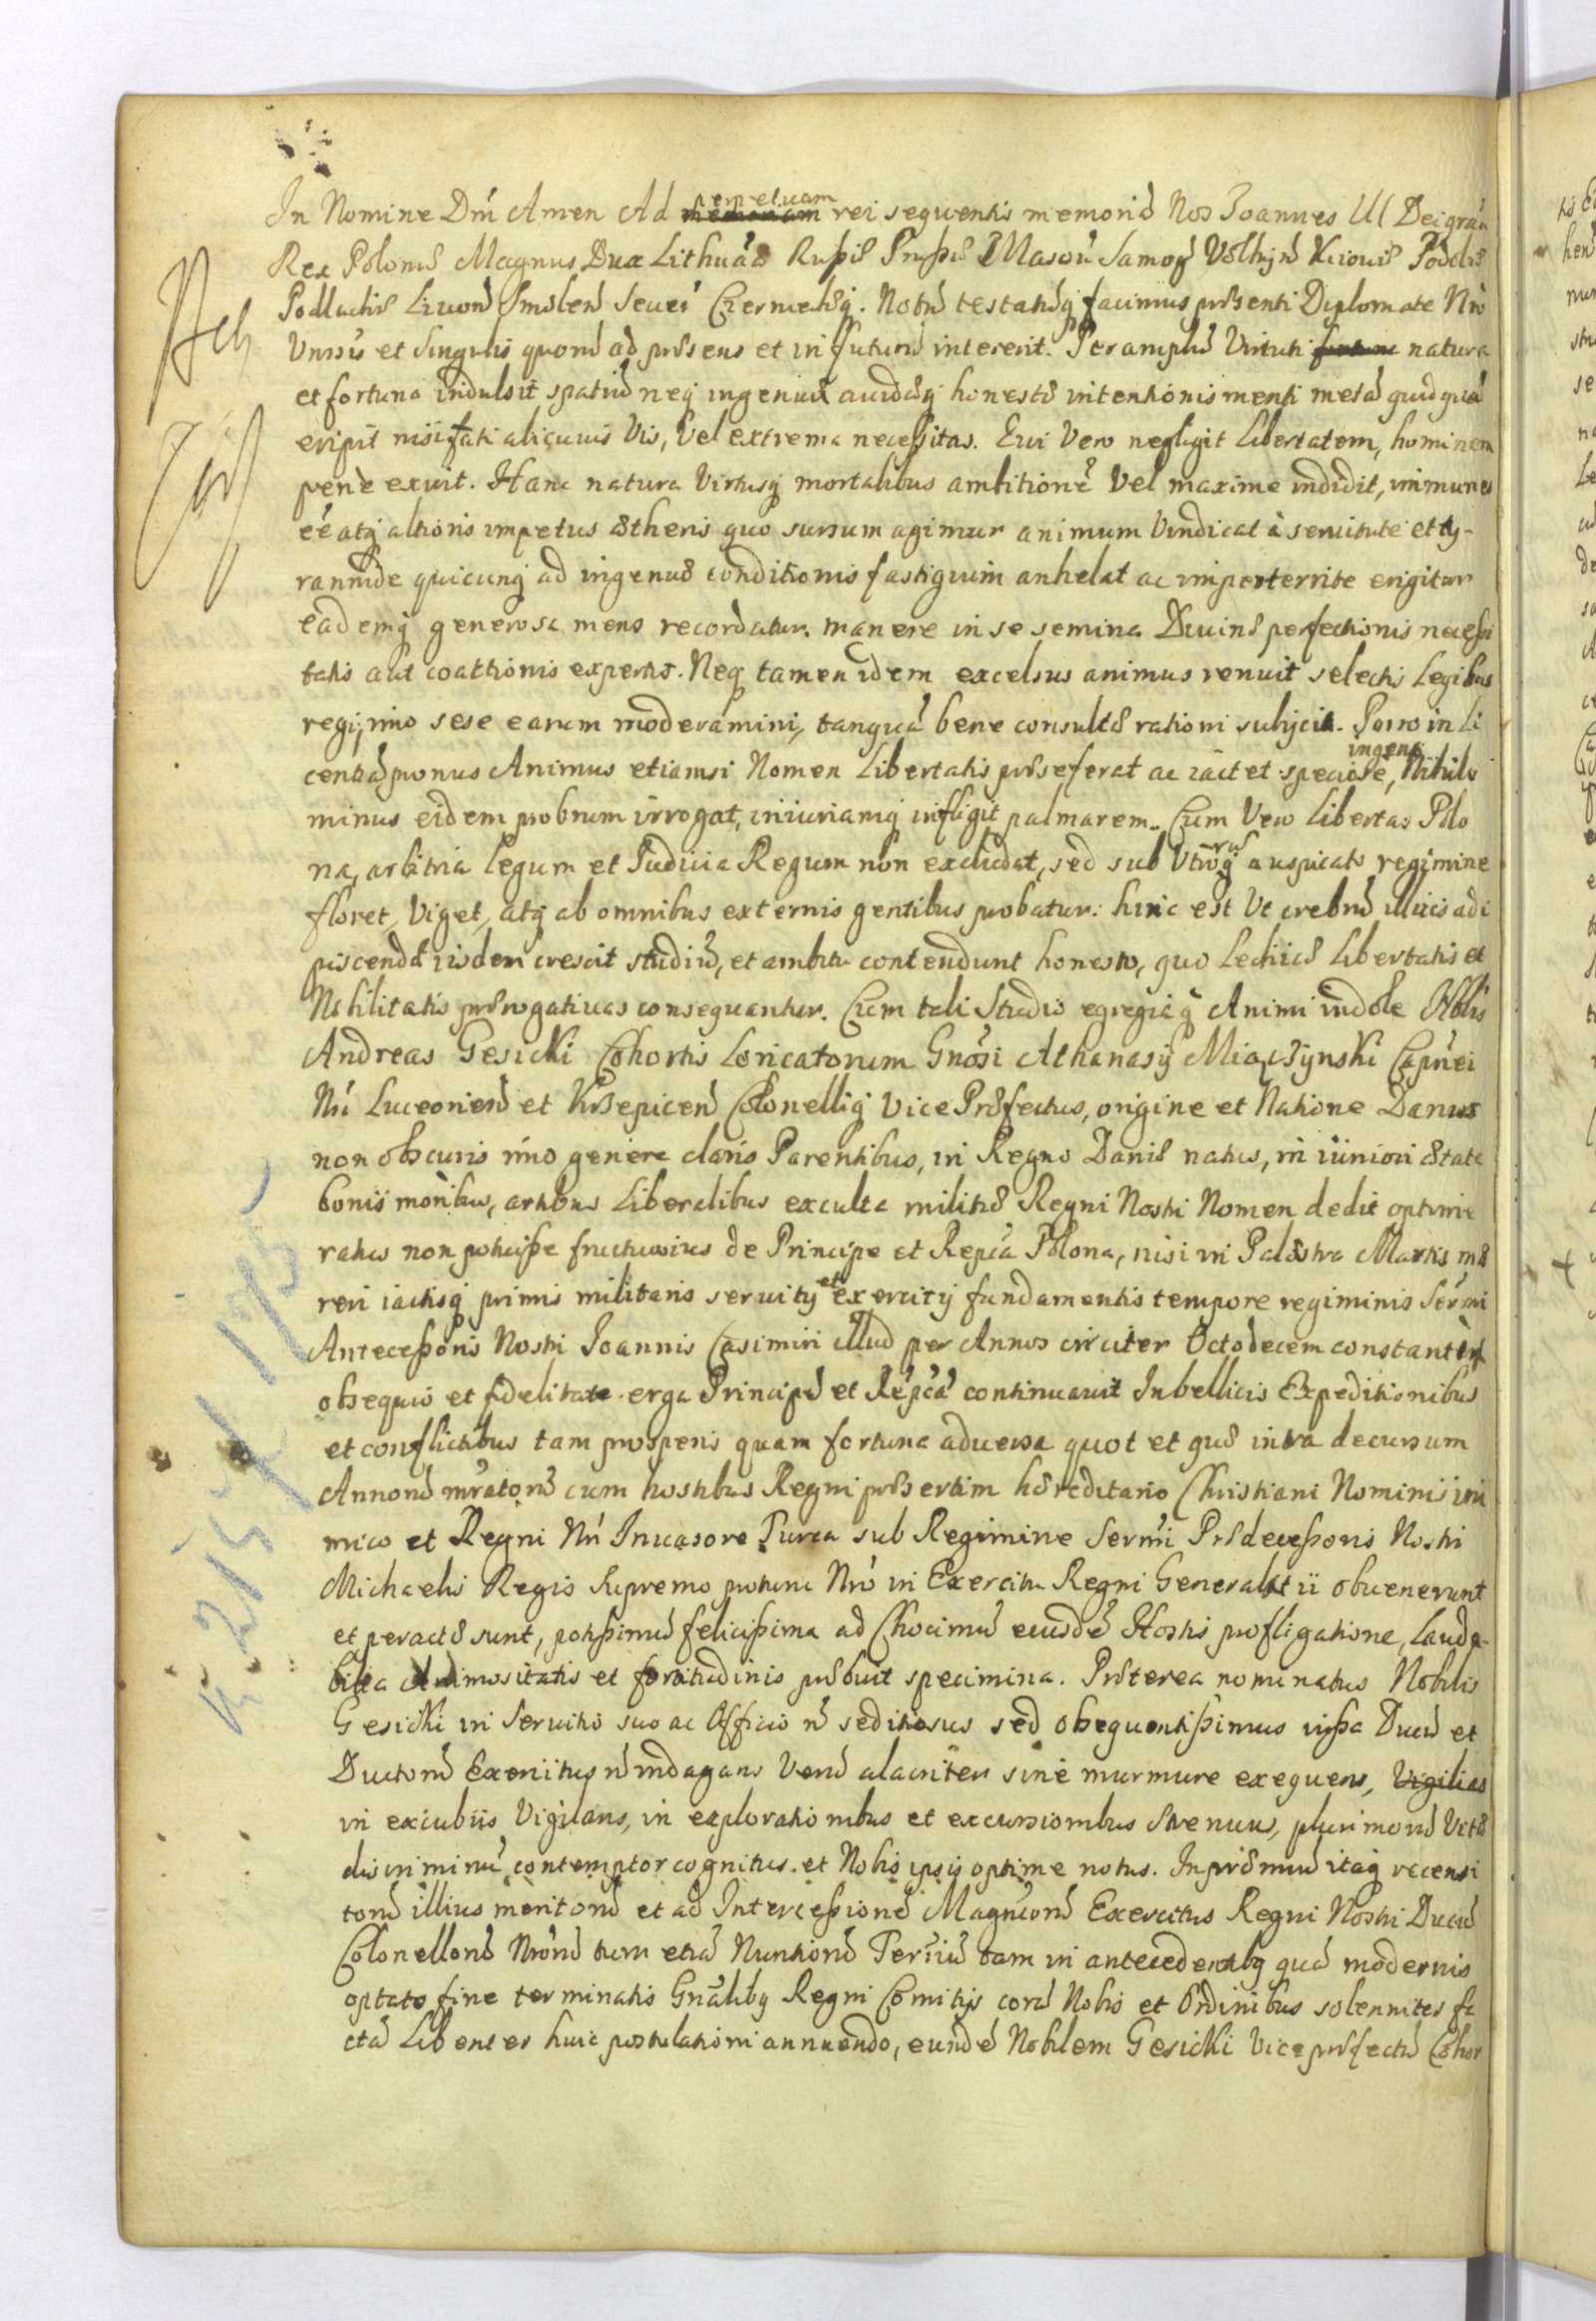 In Nomine Dni Amen Ad memoriam perpetuam rei sequentis memoriã Nos Joannes III Dei grãa
Rex Poloniæ Magnus Dux Lithuãæ Rußiæ Prußiæ Masou Samog Volhyn Kiouiæ Podoliæ
Podlachiæ Liuon Smolen Seueŕ Czerniehq. Notũ testatũq facimus præsenti Diplomate Nrõ
Vnrsis et Singulis quorũ ad præsens et in futurũ intererit. Peramplũ Virtuti fortuna natura
et fortuna indulsit spatiũ neq ingenuæ auidæq honestæ intentionis menti metã quidquã
eripit nisi fati alicuius Vis, Vel extrema neceßitas. Eui Vero negligit Libertatem, hominem
pene exuit. Hanc natura Virtusq mortalibus ambitionẽ Vel maxime indidit, immunes
eẽ atq altioris impetus ætheris quo sursum agimur animum Vindicat à seruitute et ty-
rannide quicunq ad ingenuæ conditionis fastigium anhelat ac imperterrite erigitur
eademq generosa mens recordatur manere in se semina Diuinæ perfectionis neceßi
tatis aut coactionis expertis. Neq tamen idem excelsus animus renuit selectis Legibus
regi, imo sese earum moderamini, tanquã bene consultæ rationi subijcit. Porro in Li
centiã pronus Animus etiamsi Nomen Libertatis præseferat ac iactet speciose, ingens Nihilo
minus eidem probrum irrogat, iniuriamq infligit palmarem. Cum Vero Libertas Polo
na, arbitria Legum et Iudicia Regum non excludat, sed sub Vtrorusq auspicato regimine
floret, Viget, atq ab omnibus externis gentibus probatur: hinc est Vt crebrũ illius adi
piscendæ iisdem crescit studiũ, et ambitu contendunt honesto, quo Lechicæ Libertatis et
Nobilitatis prærogatiuas consequantur. Cum tali Studio egregiaq Animi indole Nblis
Andreas Gesicki Cohortis Loricatorum Gnosi Athanasij Miączynski Capnei
Nri Luceorien et Krzepicen Colonelliq Vice Præfectus, origine et Natione Danus
non obscuris imo genere claris Parentibus, in Regno Daniæ natus, in iuniori ætate
bonis moribus, artibus Liberalibus exculta militiæ Regni Nostri Nomen dedit optime
ratus non potuiße fructuosius de Principe et Repca Polona, nisi in Palæstra Martis me
reri iactisq primis militaris seruitij et exercitij fundamentis tempore regiminis Sermi
Anteceßoris Nostri Joannis Casimiri illud per Annos circiter Octodecem constanter
obsequio et fidelitate erga Principẽ et Repcã continuauit In bellicis Expeditionibus
et conflictibus tam prosperis quam fortuna aduersa quot et quæ intra decursum
Annorũ mratorũ cum hostibus Regni præsertim hæreditario Christiani Nominis ini
mico et Regni Nri Inuasore Turca sub Regimine Sermi Prædeceßoris Nostri
Michaelis Regis Supremo protunc Nro in Exercitu Regni Generalatui obuenerunt
et peractæ sunt, potißimũ felicißima ad Chocimũ eiusdẽ Hostis profligatione, Lauda-
bilia Animositatis et fortitudinis præbuit specimina. Præterea nominatus Nobilis
Gesicki in Seruitio suo ac Officio nõ seditiosus sed obsequentißimus iußa Ducũ et
Ductorũ Exercitus nõ indagans Verũ alacriter sine murmure exequens, Vigilias
in excubiis Vigilans, in explorationibus et excursionibus Strenuus, plurimorũ Vitæ
discriminũ contemptor cognitus et Nobis ipsis optime notus. In præmiũ itaq recensi
torũ illius meritorũ et ad Interceßionẽ Magnicorũ Exercitus Regni Nostri Ducũ
Colonellorũ Nrorũ tum etiã Nuntiorũ Terriũ tam in antecedentibq quã modernis
optato fine terminatis Gnãlibq Regni Comitijs corã Nobis et Ordinibus solenniter fa
ctã Libenter huic postulationi annuendo, eundẽ Nobilem Gesicki Vicepræfectũ Cohor